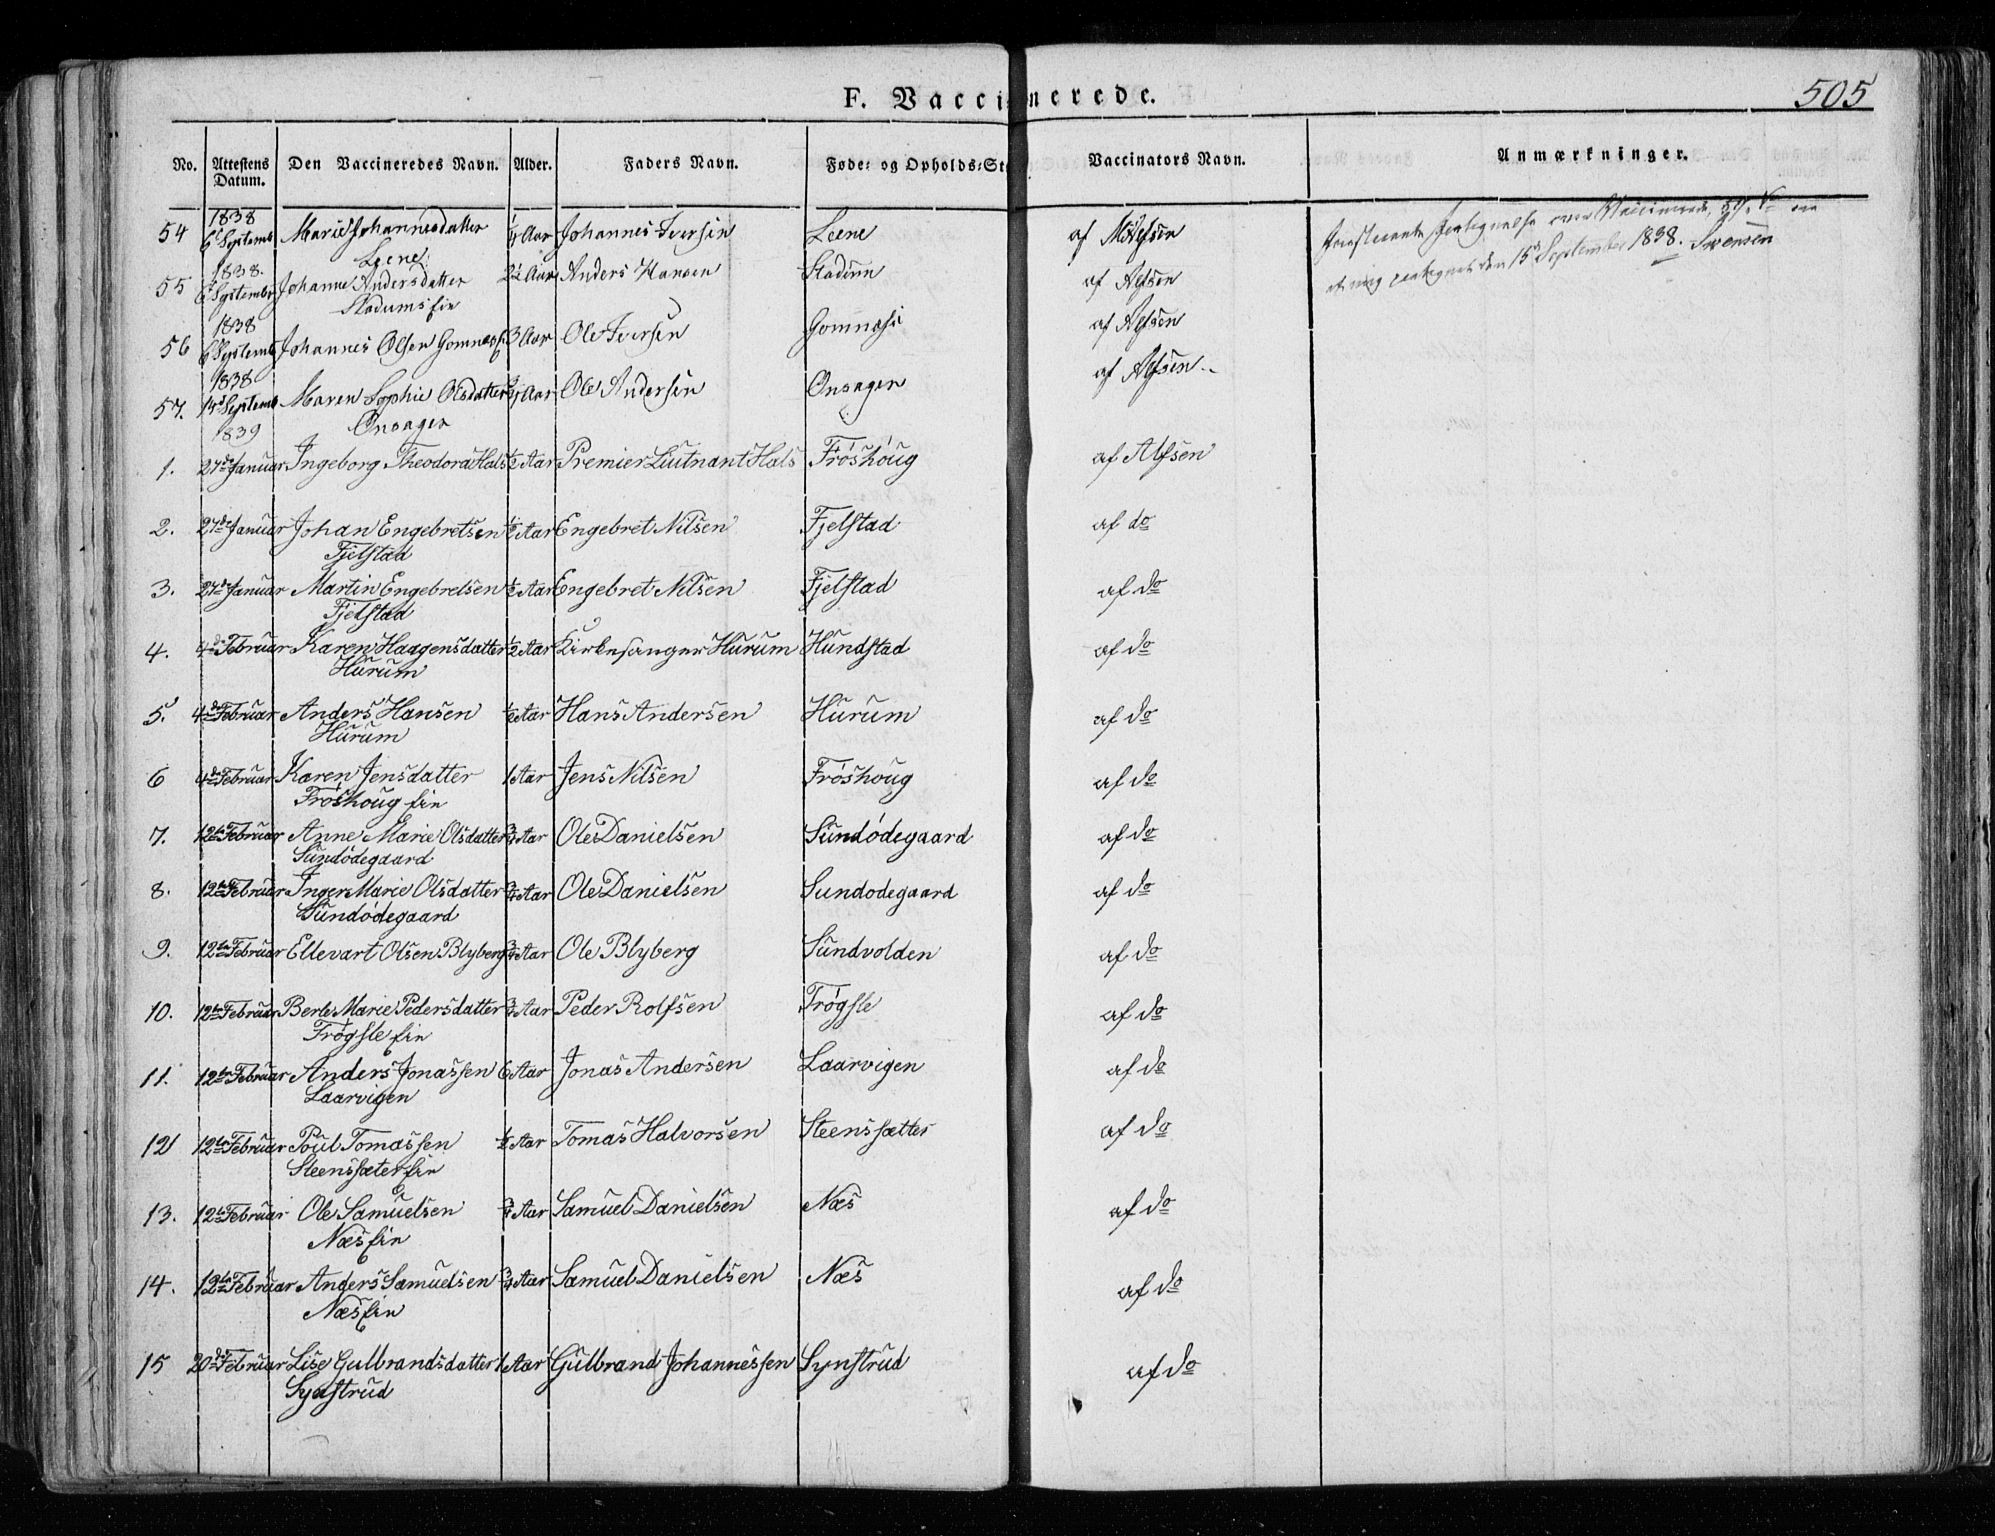 F. Vaccinerede. 505
No. Attestens Datum. Den Vaccineredes Navn. Alder. Faders Navn. Føde- og Opholds-St Vaccinators Navn. Anmærkninger.
54 1838 6 Septemb Marie Johannesdatter Leene 1/4 Aar Johannes Iversen Leene af Alfsen
15 September 1838. Svensen
55 1838. 6 Septembr Johanne Andersdatter Stadums Ein 2 1/2 Aar Anders Hansen Stadum af Alfsen
56 1838 6 Septemb Johannes Olsen Gomnæs 3 Aar Ole Iversen Gomnæs af Alfsen
57. 1838 15 Septemb Maren Sophie Olsdatter Onsager 3/4 Aar Ole Andersen Onsager af Alfsen
1839
1. 27de Januar Ingeborg Theodora Hals 1/2 Aar Premier Liutnant Hals Frøshoug af Alfsen
2. 27de Januar Johan Engebretsen 1/2 Aar Engebret Nilsen Fjelstad af do
Fjelstad
3. 27de Januar Martin Engebretsen 1/2 Aar Engebret Nilsen Fjelstad af do
Fjelstad
4. 4de Februar Karen Haagensdatter 1/2 Aar Kirkesanger Hurum Hundstad af do
Hurum
5. 4de Februar Anders Hansen 1/2 Aar Hans Andersen Hurum af do
Hurum
6 4de Februar Karen Jensdatter 1 Aar Jens Nilsen Frøshoug af do
Frøshoug Ein
7. 12te Februar Anne Marie Olsdatter 3/4 Aar Ole Danielsen Sundødegaard af do
Sundødegaard
8. 12te Februar Inger Marie Olsdatter 3/4 Aar Ole Danielsen Sundødegaard af do
Sundødegaard
9. 12te Februar Ellevart Olsen Blyberg 3/4 Aar Ole Blyberg Sundvolden af do
10. 12te Februar Berte Marie Pedersdatter 3/4 Aar Peder Rolfsen Frøgsle af do
Frøgsle Ein
11. 12te Februar Anders Jonassen 6 Aar Jonas Andersen Laarvigen af do
Laarvigen
12 12te Februar Poul Tomassen 1/2 Aar Tomas Halvorsen Steenssætter af do
Steenssæter Ein
13. 12te Februar Ole Samuelsen 3/4 Aar Samuel Danielsen Næs af do
Næs Ein
14. 12te Februar Anders Samuelsen 3/4 Aar Samuel Danielsen Næs af do
Næs Ein
15 20de Februar Lise Gulbrandsdatter 1 Aar Gulbrand Johannessen Synstrud af do
Synstrud